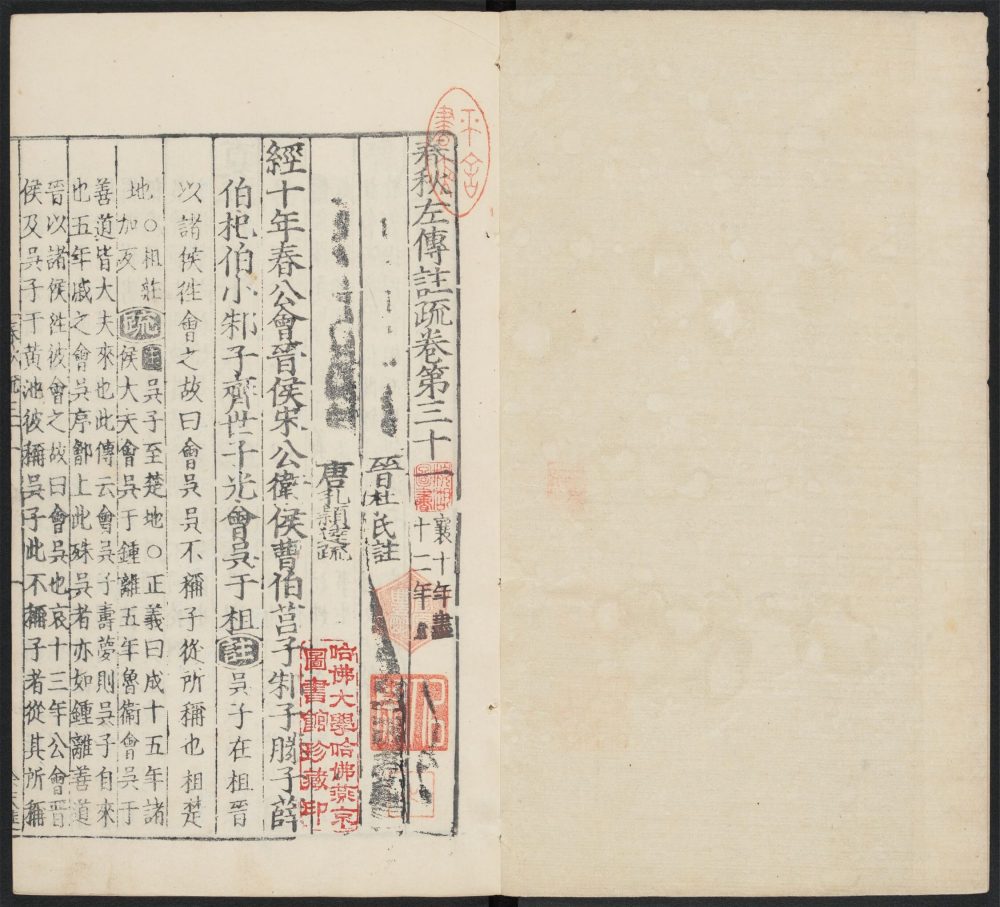 春秋左傳註疏卷第三十一
襄十年盡
十二年
晉杜氏註
唐孔穎達疏
經十年春公會晉侯宋公衛侯曹伯莒子邾子滕子薛
伯杞伯小邾子齊世子光會吳于柤註吳子在柤晉
以諸侯徃會之故曰會吳吳不稱子從所稱也柤楚
地○柤莊
加反
疏註吳子至楚地○正義曰成十五年諸
侯大夫會吳于鍾離五年魯衞會吳于
善道皆大夫來也此傳云會吳子壽夢則吳子自來
也五年戚之會吳序鄫上此殊吳者亦如鍾離善道
晉以諸侯徃彼會之故曰會吳也哀十三年公會晉
侯及吳子于黃池彼稱吳子此不稱子者從其所稱
哈佛大學哈佛燕京
圖書館珍藏印